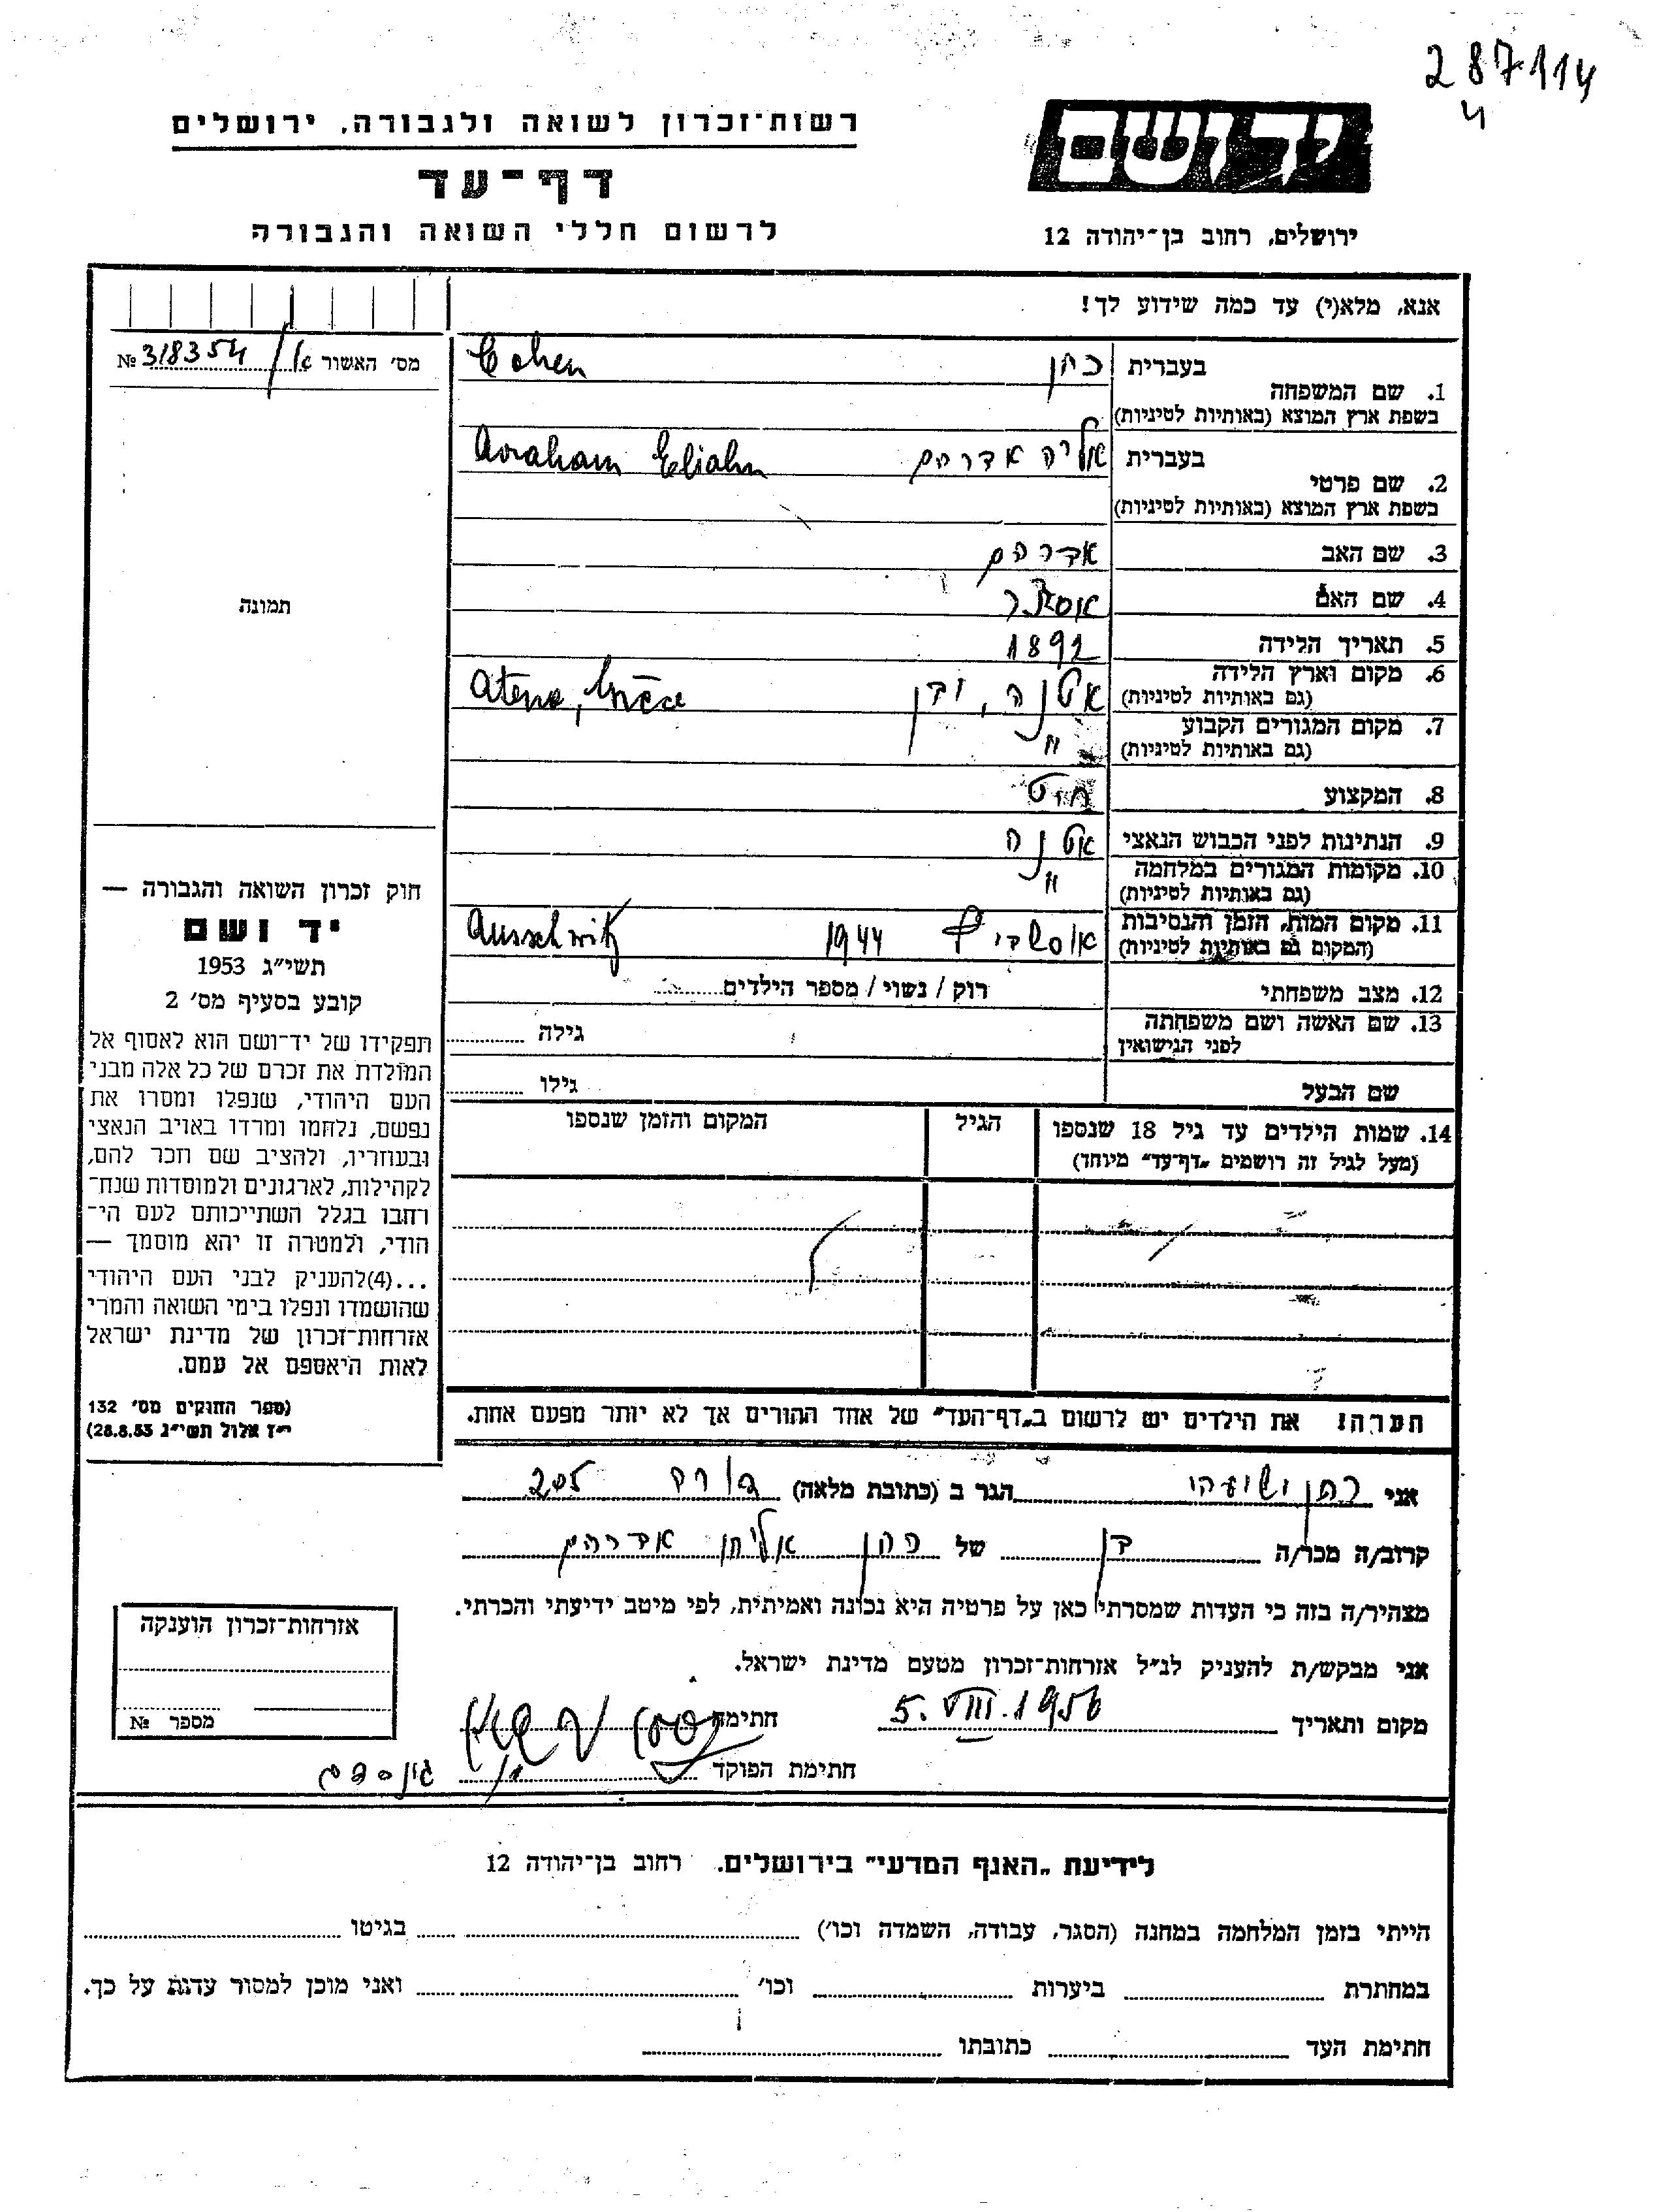 287114
4
ידושם
רשות־זכרון לשואה ולגבורה, ירושלים
דף־עד
לרשום חללי השואה והגבורה
ירושלים, רחוב בן־יהודה 12
אנא, מלא(י) עד כמה שידוע לך!
מס׳ האשור א/ 318354 №
תמונה
1. שם המשפחה
בעברית כהן Cohen
בשפת ארץ המוצא (באותיות לטיניות)
2. שם פרטי
בעברית אליה אברהם Avraham Eliahu
בשפת ארץ המוצא (באותיות לטיניות)
3. שם האב אברהם
4. שם האם אסתר
5. תאריך הלידה 1892
6. מקום וארץ הלידה אטנה, יון Atena, Grèce
(גם באותיות לטיניות)
7. מקום המגורים הקבוע "
(גם באותיות לטיניות)
8. המקצוע חיט
9. הנתינות לפני הכבוש הנאצי אטנה
10. מקומות המגורים במלחמה "
(גם באותיות לטיניות)
11. מקום המות, הזמן והנסיבות
(המקום גם באותיות לטיניות) 1944 Ausschwitz
12. מצב משפחתי רווק / נשוי / מספר הילדים
13. שם האשה ושם משפחתה גילה
לפני הנישואין
שם הבעל גילו
14. שמות הילדים עד גיל 18 שנספו הגיל המקום והזמן שנספו
(מעל לגיל זה רושמים „דף־עד" מיוחד)
הערה! את הילדים יש לרשום ב„דף־העד" של אחד ההורים אך לא יותר מפעם אחת.
חוק זכרון השואה והגבורה —
יד ושם
תשי״ג 1953
קובע בסעיף מס׳ 2
תפקידו של יד־ושם הוא לאסוף אל
המולדת את זכרם של כל אלה מבני
העם היהודי, שנפלו ומסרו את
נפשם, נלחמו ומרדו באויב הנאצי
ובעוזריו, ולהציב שם וזכר להם,
לקהילות, לארגונים ולמוסדות שנח־
רחבו בגלל השתייכותם לעם הי־
הודי, ולמטרה זו יהא מוסמך —
...(4) להעניק לבני העם היהודי
שהושמדו ונפלו בימי השואה והמרי
אזרחות־זכרון של מדינת ישראל
לאות היאספם אל עמם.
(ספר החוקים מס׳ 132
י״ז אלול תשי״ג 28.8.53)
אני כהן ישועהו הגר ב (כתובת מלאה) 205
קרוב/ה מכר/ה בן של כהן אליהו אברהם
מצהיר/ה בזה כי העדות שמסרתי כאן על פרטיה היא נכונה ואמיתית, לפי מיטב ידיעתי והכרתי.
אני מבקש/ת להעניק לנ״ל אזרחות־זכרון מטעם מדינת ישראל.
מקום ותאריך 5.VIII.1956 חתימה
חתימת הפוקד
אזרחות־זכרון הוענקה
מספר №
לידיעת „האגף המדעי" בירושלים. רחוב בן־יהודה 12
הייתי בזמן המלחמה במחנה (הסגר, עבודה, השמדה וכו׳) בגיטו
במחתרת ביערות וכו׳ ואני מוכן למסור עדות על כך.
חתימת העד כתובתו